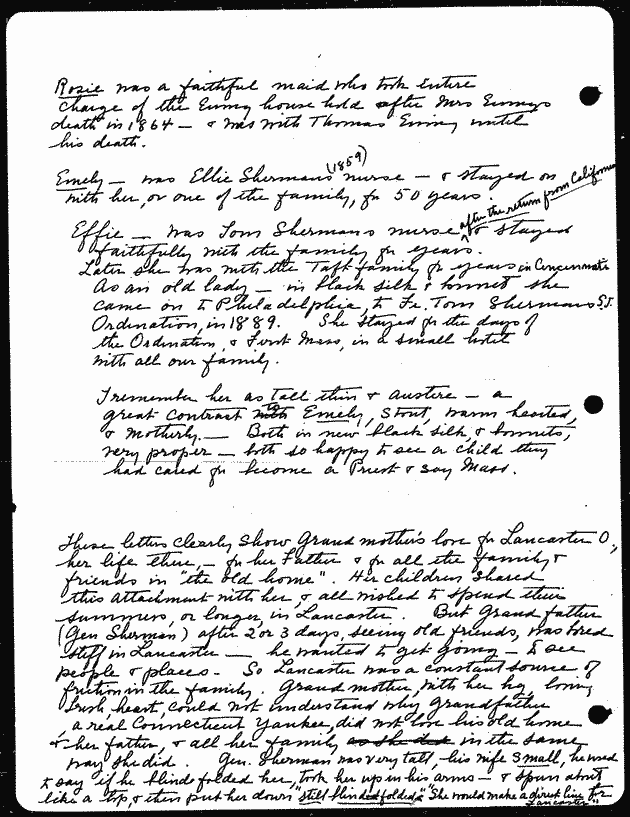 Rosie was a faithful maid who took entire
charge of the Ewing house hold after Mrs Ewings
death in 1864 — & was with Thomas Ewing until
his death.
Emely — was Ellie Shermans (1859) nurse — & stayed on
with her, or one of the family, for 50 years.
Effie — was Tom Shermans nurse after the return from California & stayed
faithfully with the family for years.
Later she was with the Taft family for years in Cincinnati
As an old lady — in black silk & bonnet she
came on to Philadelphia, to Fr. Tom Shermans S.J.
Ordination, in 1889. She stayed for the days of
the Ordination, & First Mass, in a small hotel
with all our family.
I remember her as tall thin & austere — a
great contrast with Emely, stout, warm hearted,
& motherly. — Both in new black silk, & bonnets,
very proper — both so happy to see a child they
had cared for become a Priest & say Mass.
These letters clearly show Grand mother's love for Lancaster O,
her life there, — for her Father & for all the family &
friends in "the old home". Her children shared
this attachment with her, & all wished to spend their
summers, or longer, in Lancaster. But Grand father
(Gen Sherman) after 2 or 3 days, seeing old friends, was bored
stiff in Lancaster — he wanted to get going — to see
people & places. So Lancaster was a constant source of
friction in the family. Grand mother, with her big, loving
Irish, heart, could not understand why Grandfather
, a real Connecticut Yankee, did not love his old home
& her father, & all her family as she did in the same
way she did. Gen. Sherman was very tall, — his wife small, he used
to say if he blindefolded her, took her up in his arms — & spun about
like a top, & then put her down "still blindedfolded," "She would make a direct line for
Lancaster"